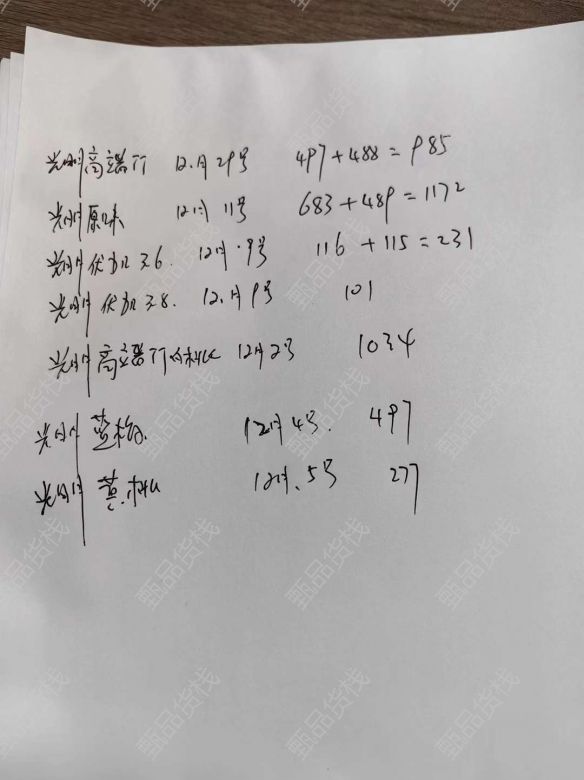 光明 高端丁 12月29号 497+488=985
光明 原味 12月 11号 683+489=1172
光明 优加 3.6. 12月.9号 116+115=231
光明 优加 3.8. 12.月9号 101
光明 高端丁 12月2号 1034
光明 12月4号. 497
光明 12月.5号 277
甄品货栈